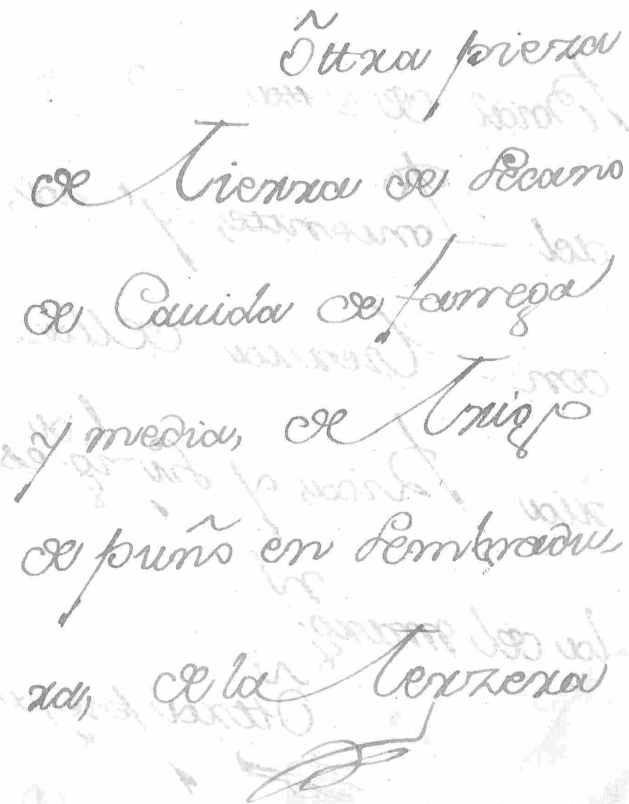 Ôttra pieza
de Tierra de Secano
de Cauida de fanega
y media, de Trigo
de puño en Sembradu-
ra, de la Terzera